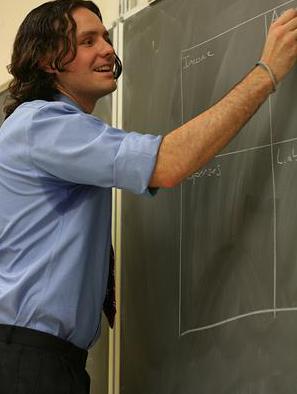 Income
A
Expenses
Liab